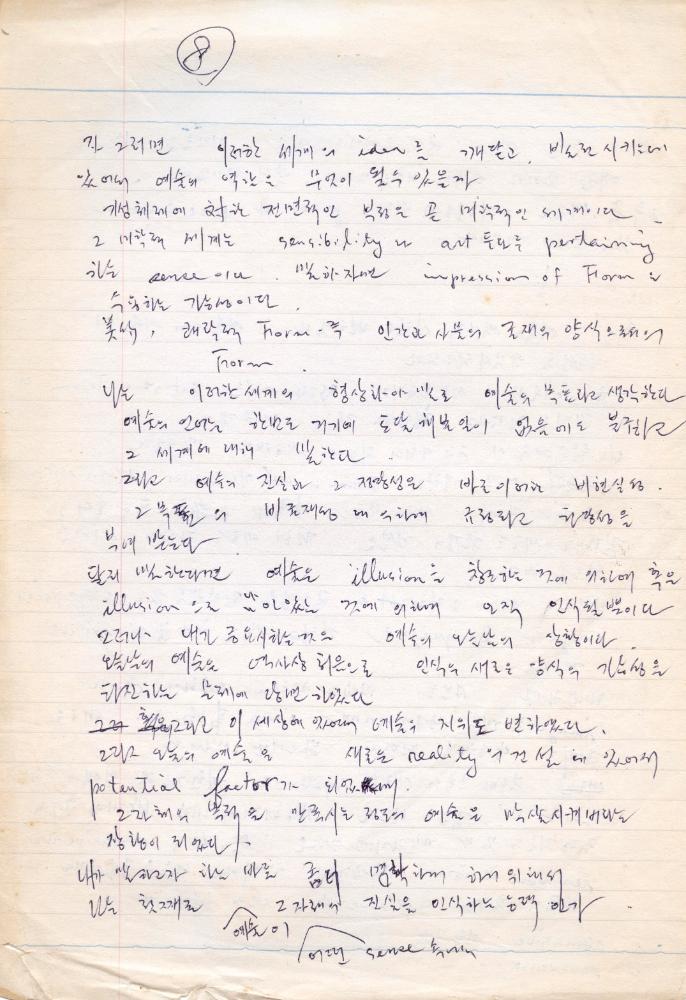 8
자 그러면 이러한 세계의 idea를 깨닫고
있어서 예술의 역할은 무엇이 될수 있을까
기성체제에 対한 전면적인 부정은 곧 미학적인 세계이다
그 미학적 세계는 sensibility나 art 등으로 pertaining
하는 sense이며. 말하자면 impression of Form을
수용하는 가능성이다.
美的, 쾌락적 Form - 즉 인간과 사물의 존재의 양식으로서의
Form.
나는 이러한 세계의 형상화야 말로 예술의 목표라고 생각한다
예술의 언어는 한번도 거기에 도달해본일이 없음에도 불구하고
그 세계에 대해 말한다.
그리고 예술의 진실과 그 정당성은 바로 이러한 비현실성.
그 목표의 비존재성에 의하여 규정되고 타당성을
부여 받는다
달리 말한다면 예술은 illusion을 창조하는 것에 의하여 혹은
illusion으로 남아있는 것에 의하여 오직 인식될 뿐이다
그러나 내가 중요시하는 것은 예술의 오늘날의 상황이다.
오늘날의 예술은 역사상 처음으로 인식의 새로운 양식의 가능성을
타진하는 문제에 당면하였다
그리고 이 세상에 있어서 예술의 지위도 변하였다.
그리고 오늘의 예술은 새로운 reality의 건설에 있어서
potential factor가 되었으며.
그 자체의 목적을 만족시키는 정도의 예술은 말살시켜버리는
상황이 되었다.
내가 말하고자 하는 바를 좀더 명확하게 하기 위해서
나는 첫째로 그 자체의 진실을 인식하는 능력인가.
예술이
어떤 sense 속에서